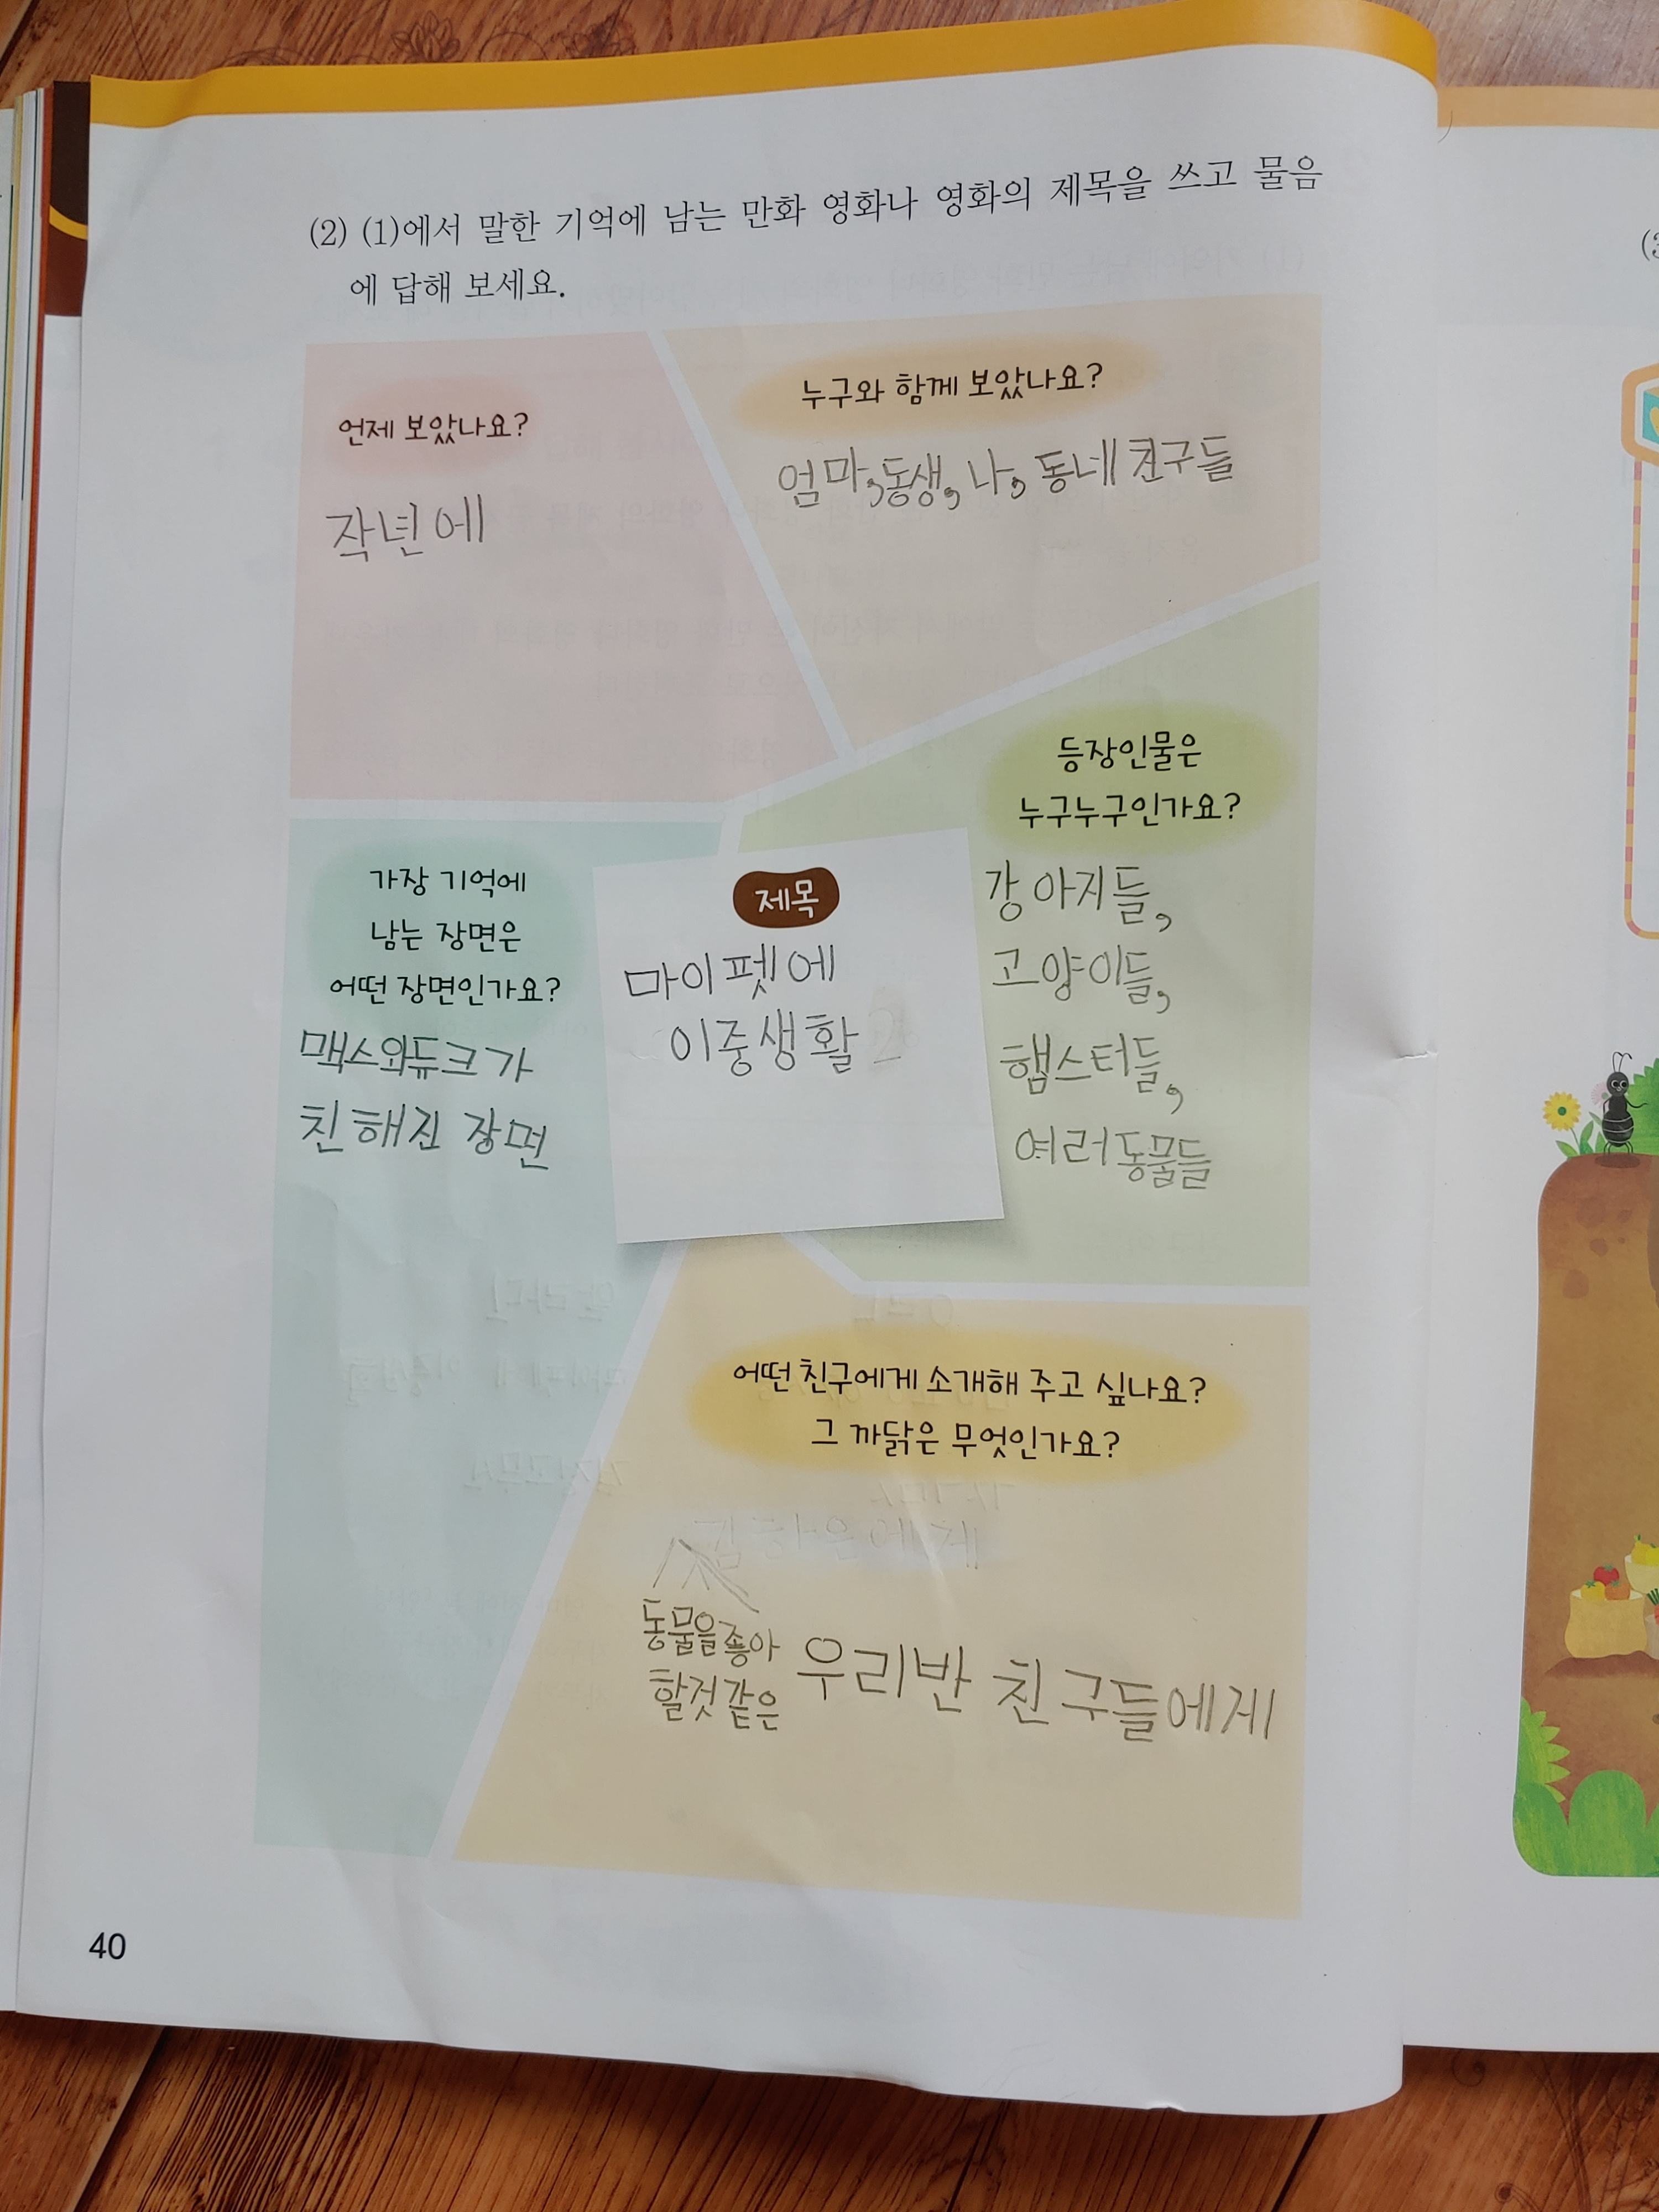 (2) (1)에서 말한 기억에 남는 만화 영화나 영화의 제목을 쓰고 물음
에 답해 보세요.
언제 보았나요?
작년에
누구와 함께 보았나요?
엄마, 동생, 나, 동네 친구들
등장인물은
누구누구인가요?
강아지들,
고양이들,
햄스터들,
여러 동물들
제목
마이펫에
이중생활
가장 기억에
남는 장면은
어떤 장면인가요?
맥스와듀크가
친해진 장면
어떤 친구에게 소개해 주고 싶나요?
그 까닭은 무엇인가요?
동물을좋아
할것같은 우리반 친구들에게
40